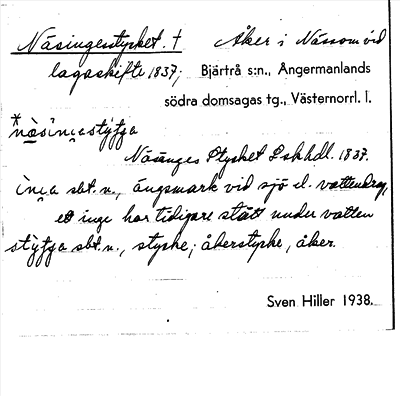 Näsingesstycket. † Åker i Nässom vid
lagaskifte 1837; Bjärtrå s:n., Ångermanlands
södra domsagas tg., Västernorrl. l.
Näsinges Stycket Lskhdl. 1837.
sbt. n., ängsmark vid sjö el. vattendrag,
ett inge har tidigare stått under vatten
sbt. n., stycke; åkerstycke, åker.
Sven Hiller 1938.